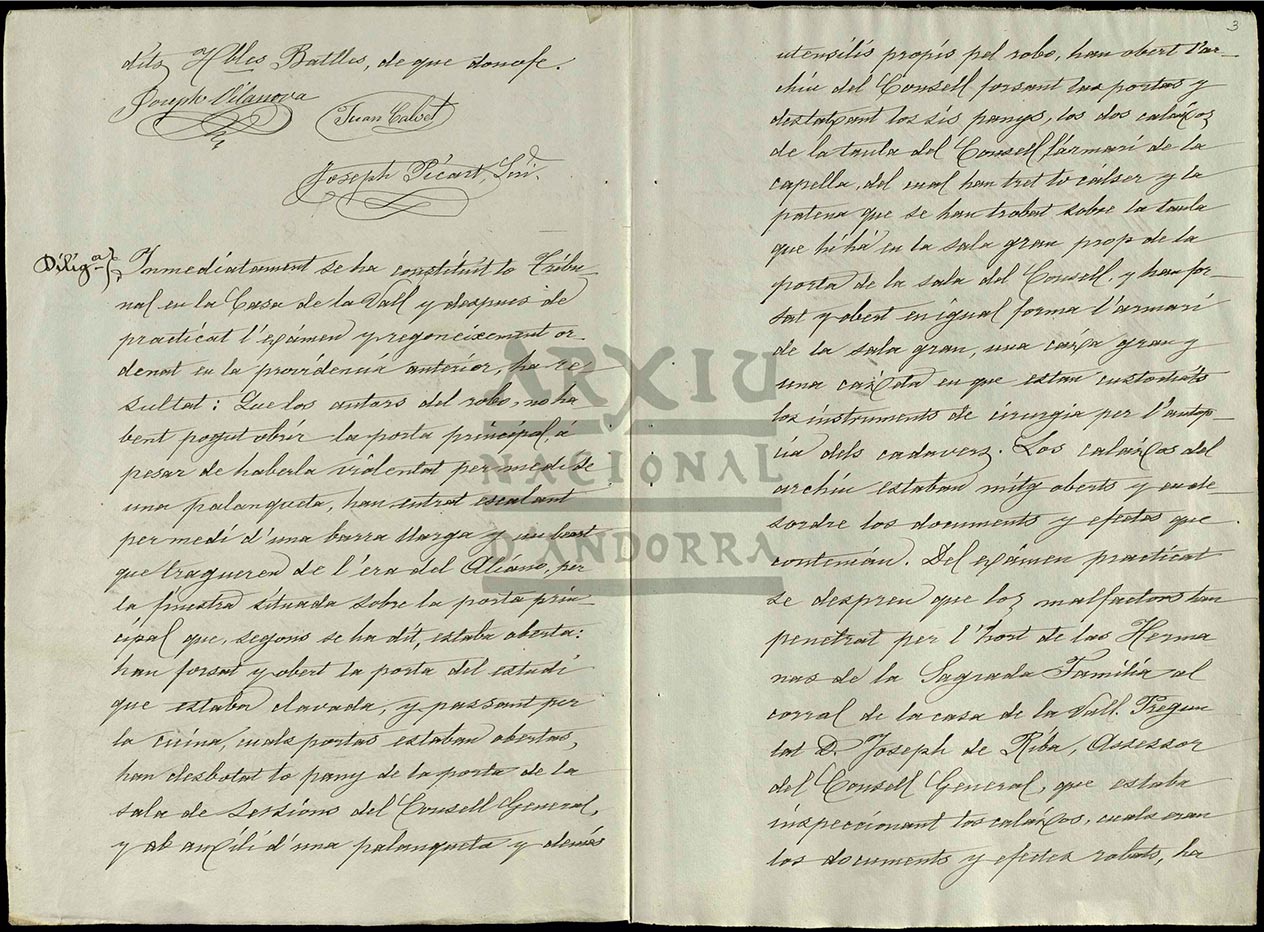 dits Hbles Batlles, de que donofe.
Joseph Vilanova
Juan Calvet
Joseph Picart, Sri.
Diliga.
Inmediatament se ha constituit lo Tribu-
nal en la Casa de la Vall y despues de
practicat l'exámen y regoneixement or
denat en la providencia anterior, ha re-
sultat: Que los autors del robo, no ha
bent pogut obrir la porta principal, á
pesar de haberla violentat per medi de
una palanqueta, han entrat escalant
per medi d'una barra llarga y un bast
que tragueren de l'éra del, per
la finestra situada sobre la porta prin-
cipal que, segons se ha dit, estaba oberta:
han forsat y obert la porta del estudi
que estaba clavada, y passant per
la cuina, cuals portas estaban obertas,
han desbotat lo pany de la porta de la
sala de Sessions del Consell General,
y ab auxili d'una palanqueta y demés
3
utensilis propis pel robo, han obert l'ar-
chiu del Consell forsant las portas y
destaxant los sis panys, los dos calaixos
de la taula del Consell l'armari de la
capella, del cual han tret lo cálser y la
patena que se han trobat sobre la taula
que hi há en la sala gran prop de la
porta de la sala del Consell, y han for-
sat y obert en igual forma l'armari
de la sala gran, una caixa gran y
una caixeta en que estan custodiats
los instruments de cirurgia per l'autop-
cia dels cadavers. Los calaixos del
archiu estaban mitg oberts y en de-
sordre los documents y efectes que
contenian. Del exámen practicat
se despren que los malfactors han
penetrat per l'hort de las Herma
nas de la Sagrada Familia al
corral de la casa de la Vall. Pregun
tat D. Joseph de Riba, Assessor
del Consell General, que estaba
inspeccionant los calaixos, cuals eran
los documents y efectes robats, ha
ARXIU
NACIONAL
D'ANDORRA